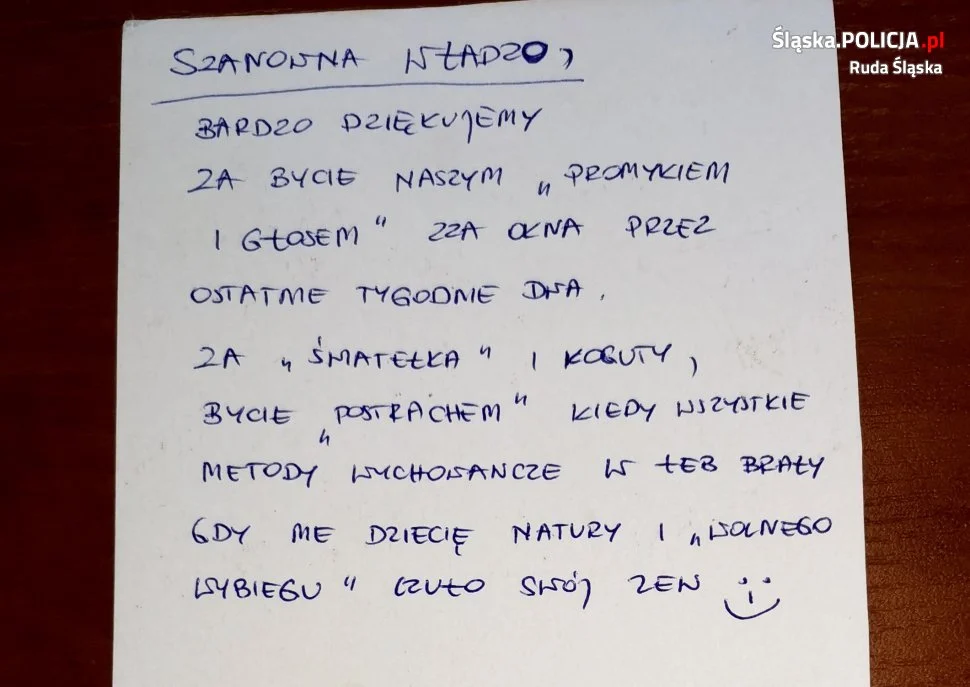 Śląska.POLICJA.pl
Ruda Śląska
SZANOWNA WŁADZO,
BARDZO DZIĘKUJEMY
ZA BYCIE NASZYM „PROMYKIEM
I GŁOSEM" ZZA OKNA PRZEZ
OSTATNIE TYGODNIE DNIA.
ZA „ŚWIATEŁKA" I KOGUTY,
BYCIE „POSTRACHEM" KIEDY WSZYSTKIE
METODY WYCHOWAWCZE W ŁEB BRAŁY
GDY ME DZIECIĘ NATURY I „WOLNEGO
WYBIEGU" CZUŁO SWÓJ ZEW